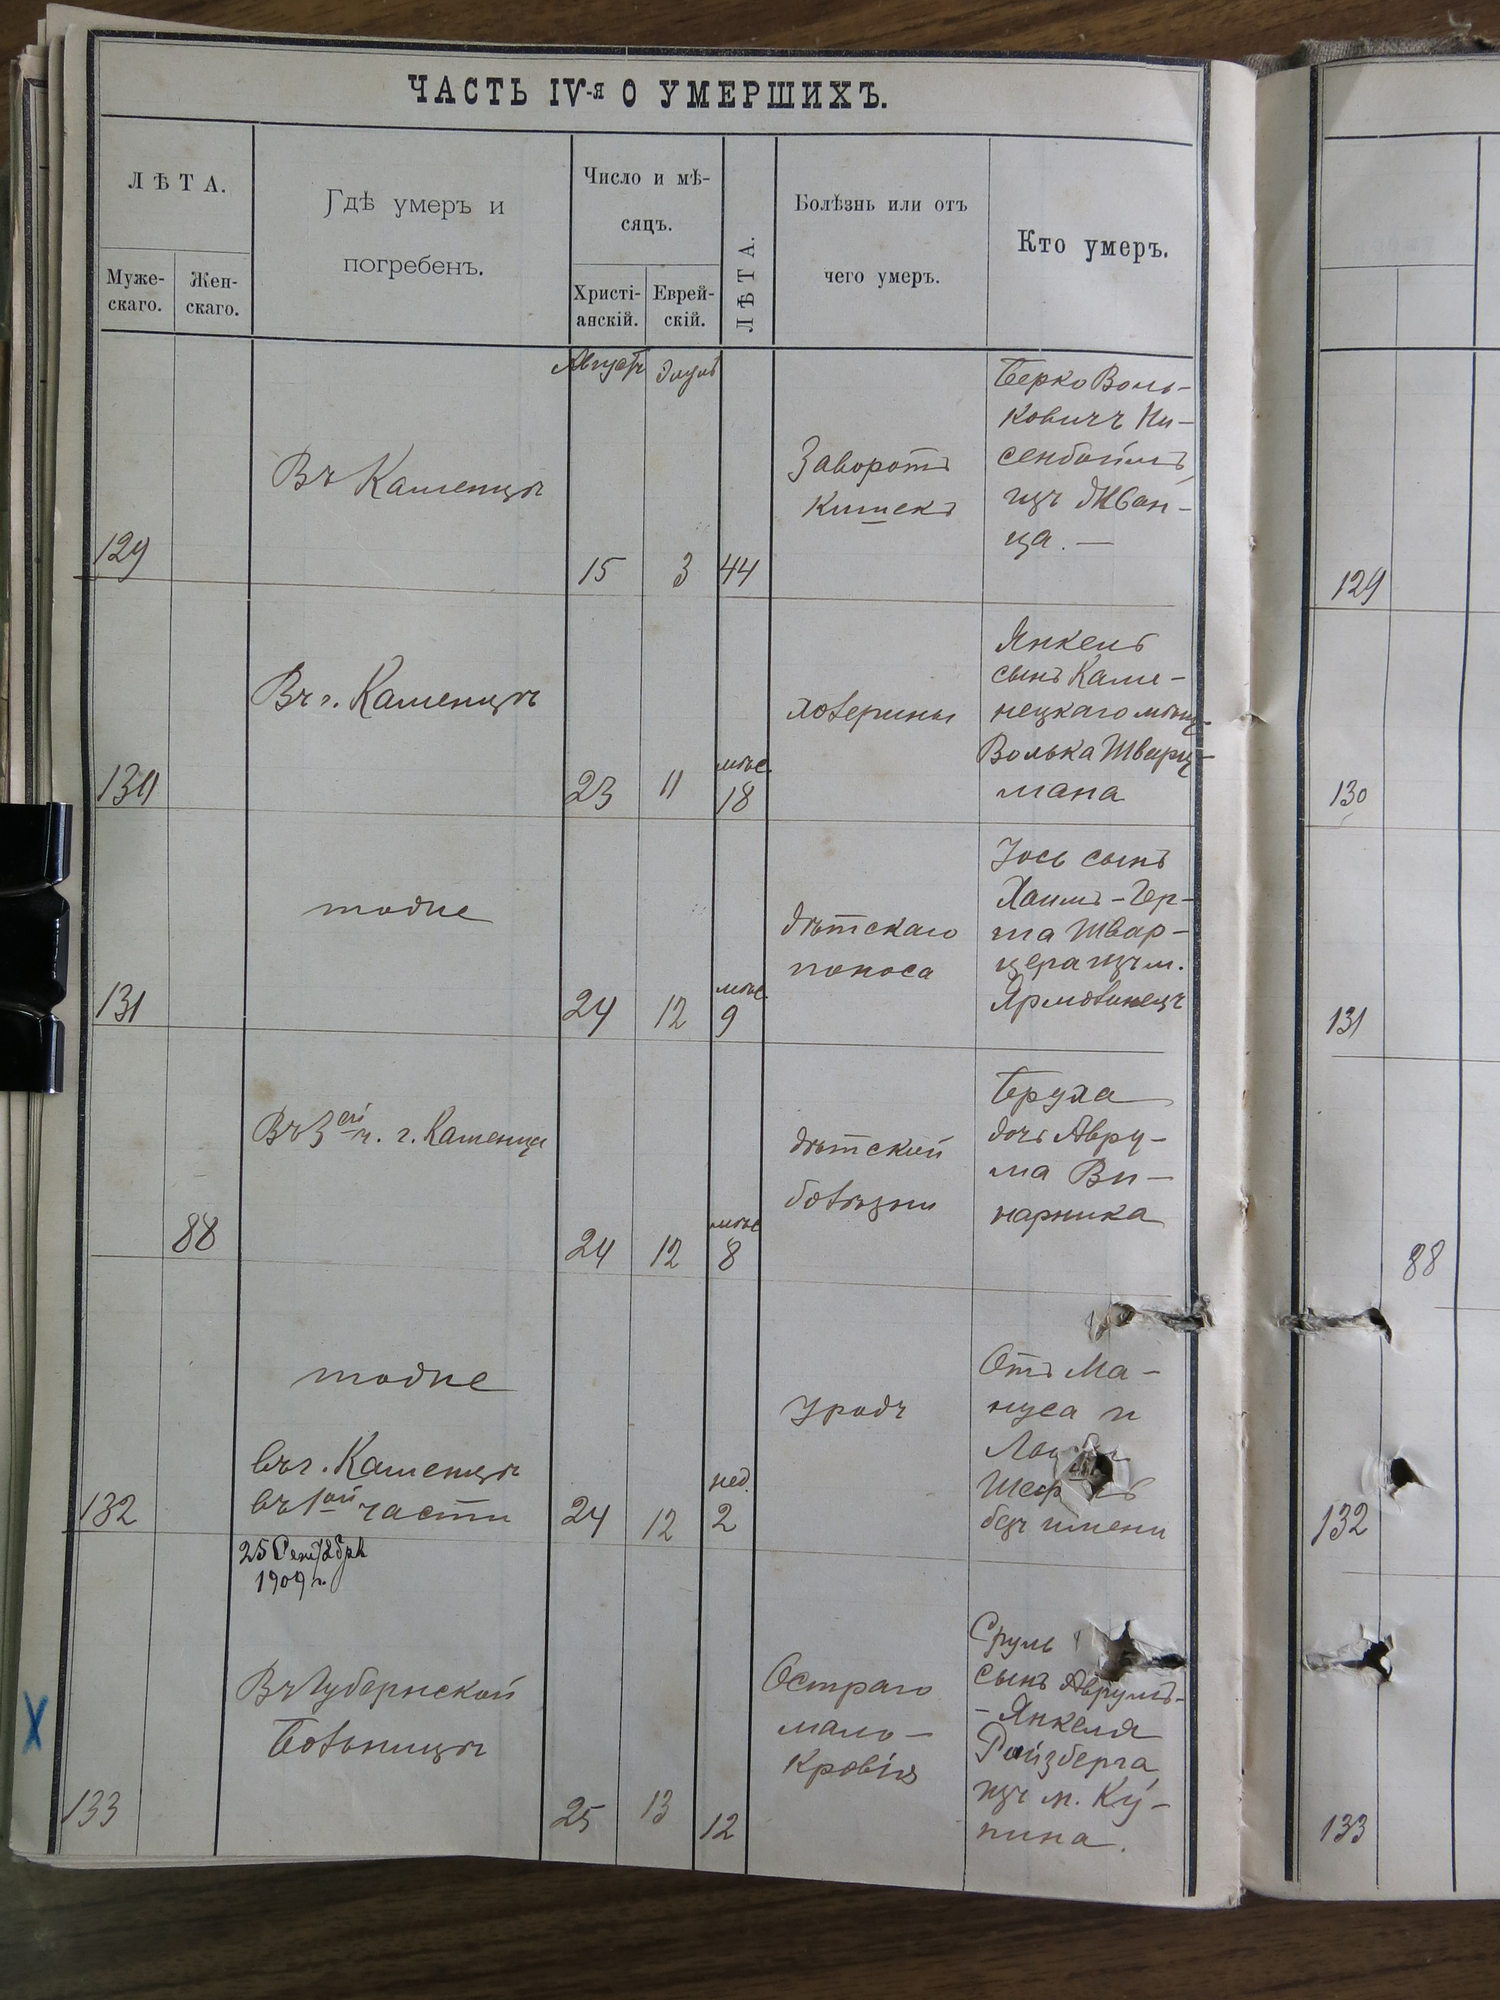 ЧАСТЬ IV-я О УМЕРШИХЪ.
ЛѢТА.
Муже-
скаго.
Жен-
скаго.
Гдѣ умеръ и
погребенъ.
Число и мѣ-
сяцъ.
Христі-
анскій.
Еврей-
скій.
ЛѢТА.
Болѣзнь или отъ
чего умеръ.
Кто умеръ.
Августъ
Элулъ
129
Въ Каменцѣ
15
3
44
Заворотъ
кишекъ
Берко Воль-
ковичъ Ни-
сенбоймъ
изъ Жван-
ца. —
129
130
Въ г. Каменцѣ
23
11
мѣс.
18
холерины
Янкель
сынъ Каме-
нецкаго мѣщ.
Волька Шварц-
мана
130
131
тоже
24
12
мѣс.
9
дѣтскаго
поноса
Іось сынъ
Хаимъ-Гер-
ша Швар-
цера изъ м.
Ярмолинецъ
131
88
Въ 3ей ч. г. Каменца
24
12
мѣс
8
дѣтской
болѣзни
Бруха
дочь Авру-
ма Ви-
нарника
88
132
тоже
въ г. Каменцѣ
въ 1ой части
24
12
нед.
2
Уродъ
Отъ Ма-
нуса и
без имени
132
25 Сентября
1909 г.
133
Въ Губернской
Больницѣ
25
13
12
Остраго
мало-
кровія
Сруль
сынъ Аврумъ-
-Янкеля
Ройзберга
изъ м. Ку-
пина.
133
X